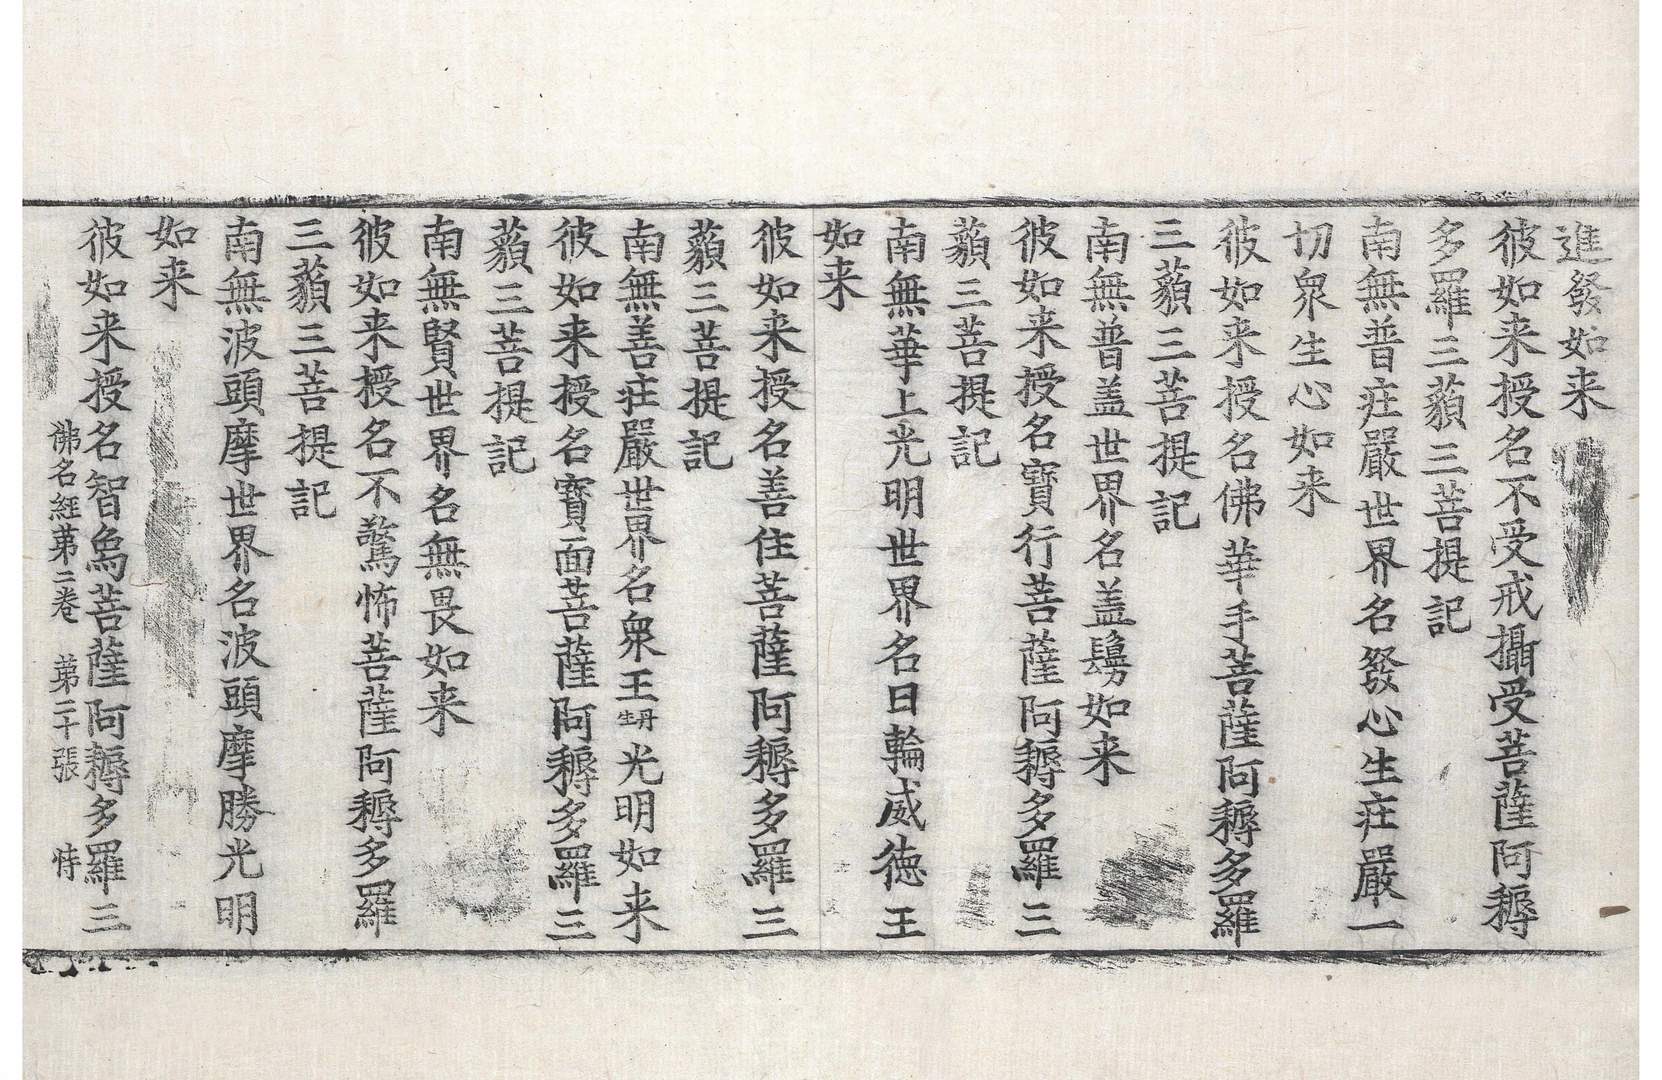 進發如来
彼如来授名不受戒攝受菩薩阿耨
多羅三藐三菩提記
南無普莊嚴世界名發心生莊嚴一
切衆生心如来
彼如来授名佛華手菩薩阿耨多羅
三藐三菩提記
南無普盖世界名盖鬘如来
彼如来授名寶行菩薩阿耨多羅三
藐三菩提記
南無華上光明世界名日輪威德王
如来
彼如来授名善住菩薩阿耨多羅三
藐三菩提記
南無善莊嚴世界名衆王丹生光明如来
彼如来授名寶面菩薩阿耨多羅三
藐三菩提記
南無賢世界名無畏如来
彼如来授名不驚怖菩薩阿耨多羅
三藐三菩提記
南無波頭摩世界名波頭摩勝光明
如来
彼如来授名智象菩薩阿耨多羅三
佛名經第二卷 第二十張 恃